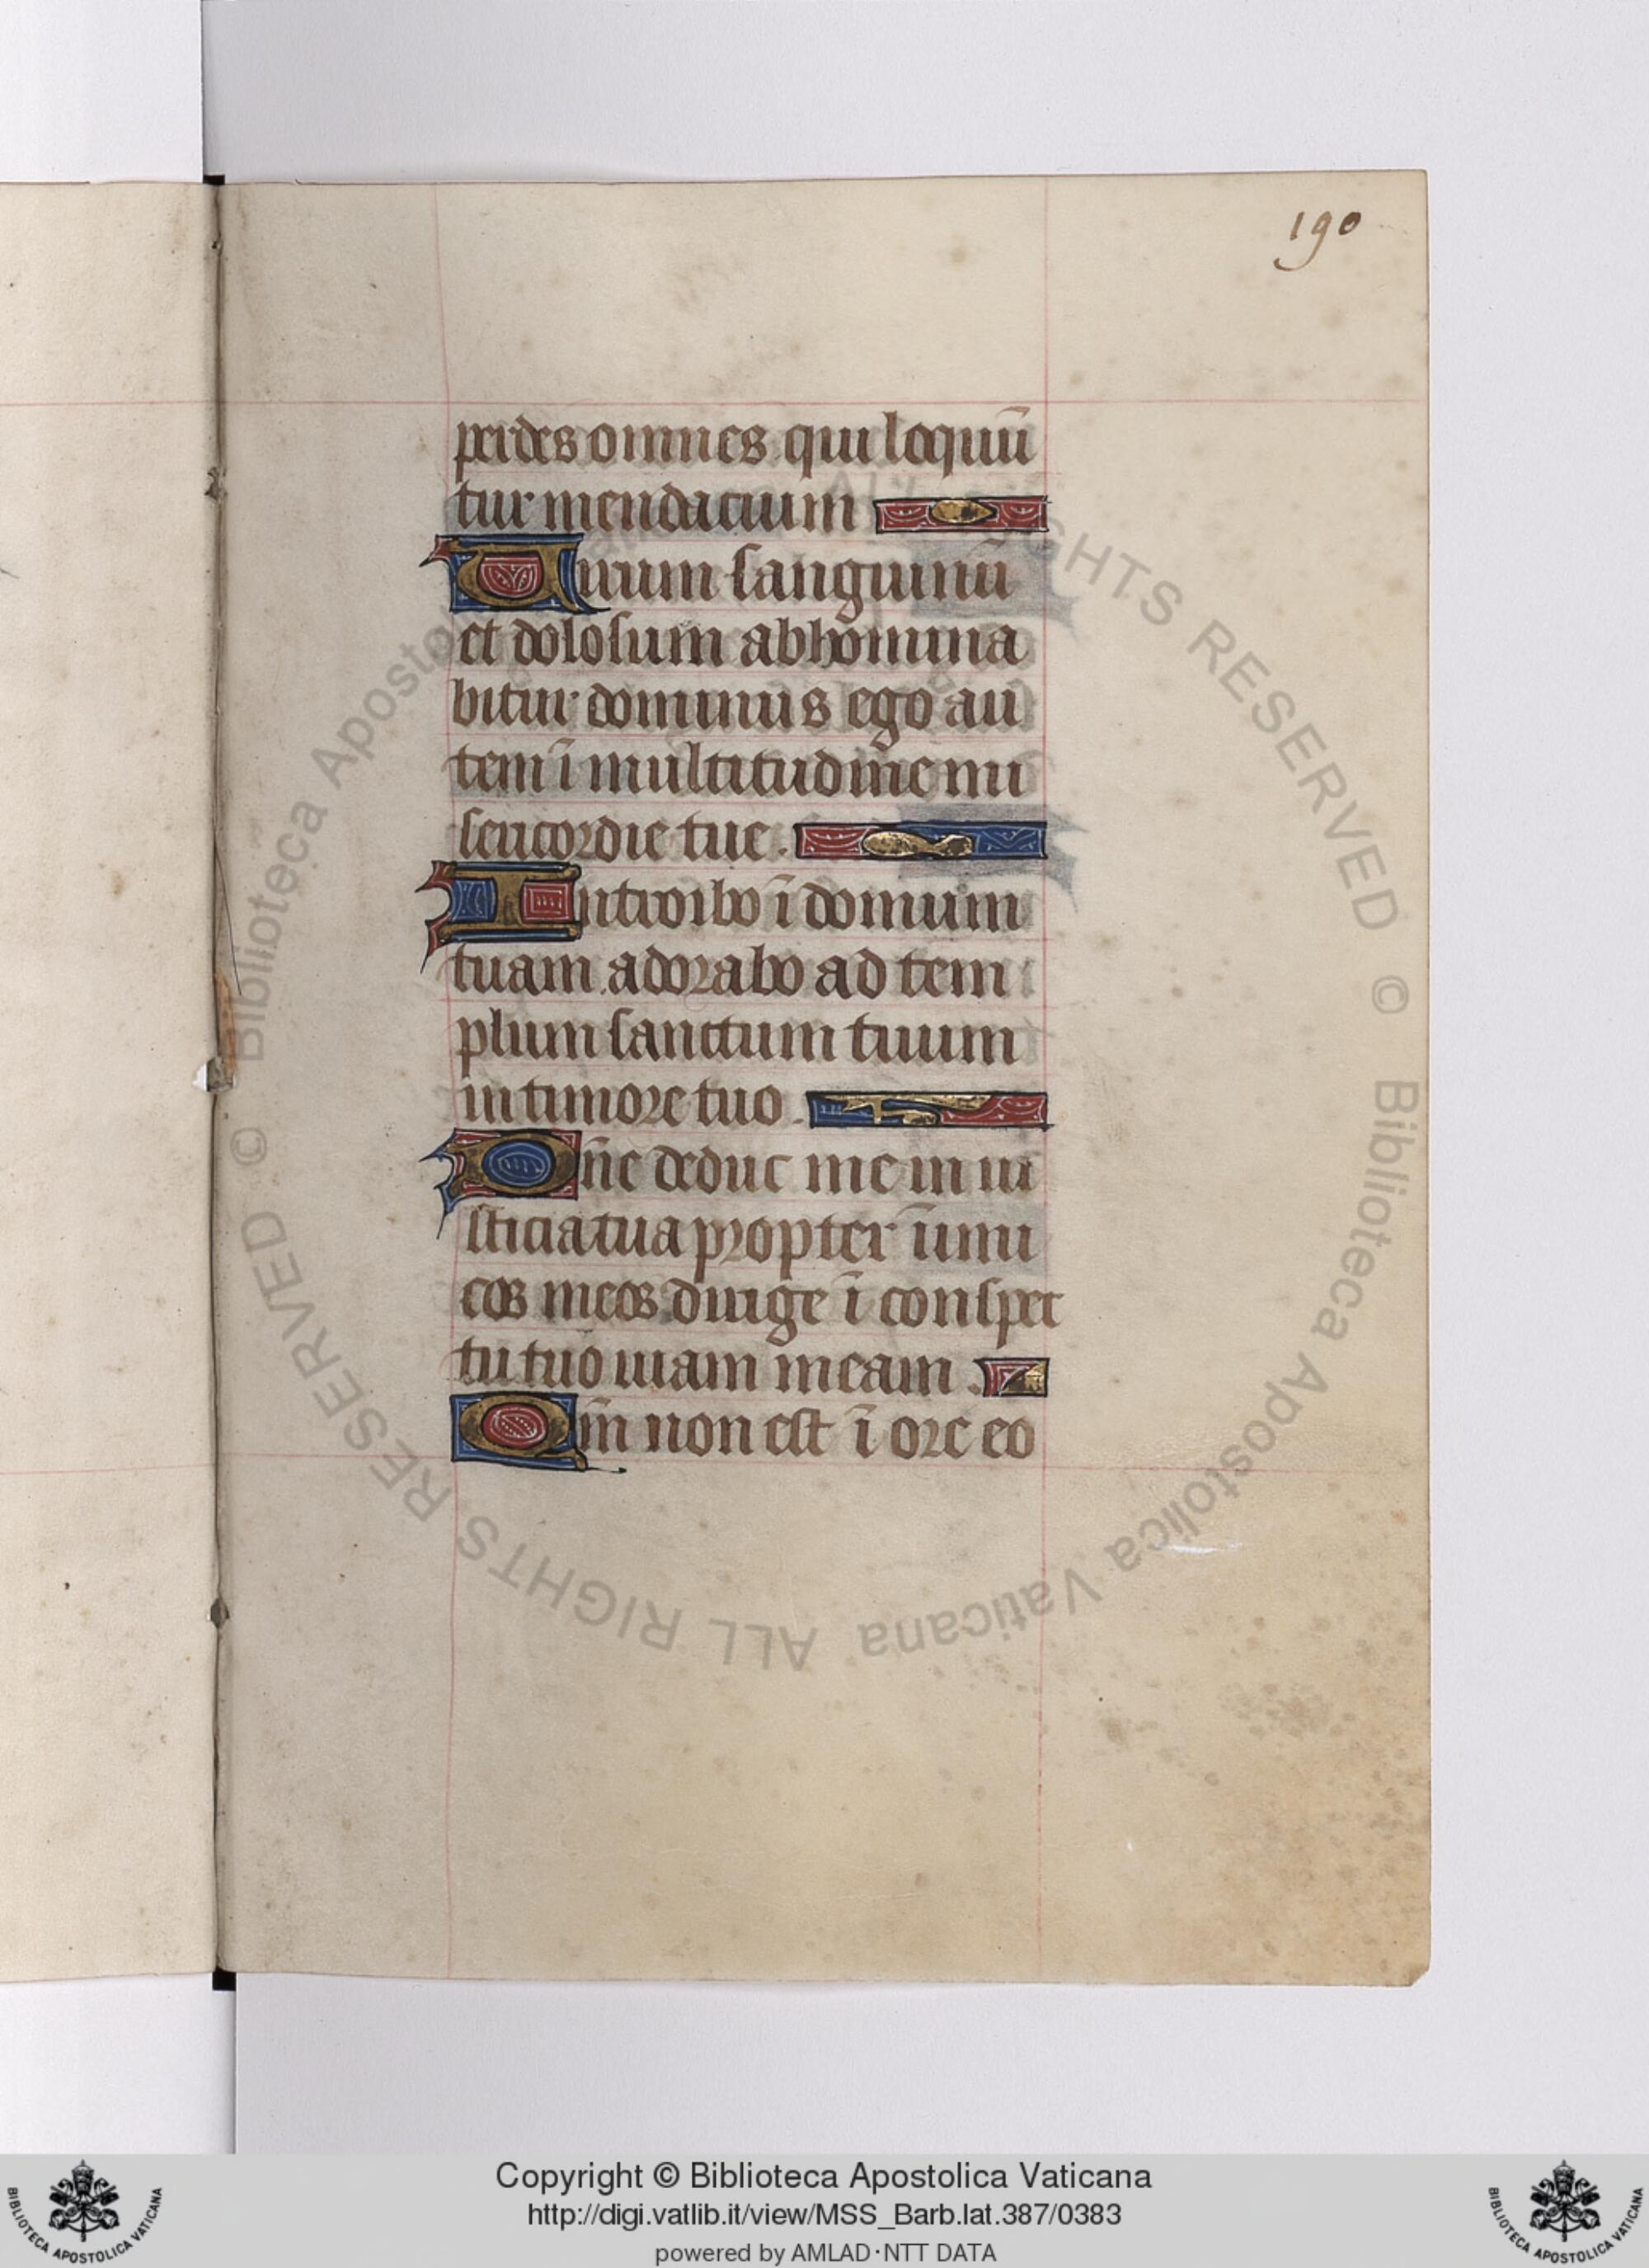 190
perdes omnes qui loquū
tur mendacium
Uirum sanguinū
et dolosum abhomina
bitur dominus ego au
tem ī multitudīe mi
sericordie tue.
Introibo ī domum
tuam adorabo ad tem
plum sanctum tuum
in timore tuo.
Dn̄e deduc me in iu
sticia tua propter īimi
cos meos dirige ī conspec
tu tuo uiam meam.
Qm̄ non est ī ore eo
© Biblioteca Apostolica Vaticana ALL RIGHTS RESERVED © Biblioteca Apostolica Vaticana ALL RIGHTS RESERVED
Copyright © Biblioteca Apostolica Vaticana
http://digi.vatlib.it/view/MSS_Barb.lat.387/0383
powered by AMLAD·NTT DATA
BIBLIOTECA APOSTOLICA VATICANA
BIBLIOTECA APOSTOLICA VATICANA